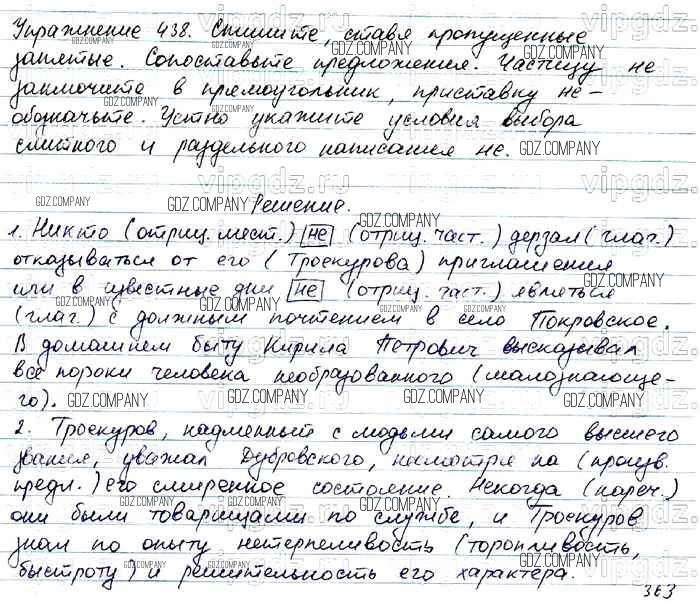 Упражнение 438. Спишите, ставя пропущенные
запятые. Сопоставьте предложения. Частицу не
заключите в прямоугольник, приставку не-
обозначьте. Устно укажите условия выбора
слитного и раздельного написания не.
Решение.
1. Никто (отриц. мест.) не (отриц. част.) дерзал (глаг.)
отказываться от его (Троекурова) приглашения
или в известные дни не (отриц. част.) являться
(глаг.) с должным почтением в село Покровское.
В домашнем быту Кирила Петрович высказывал
все пороки человека необразованного (малознающе-
го).
2. Троекуров, надменный с людьми самого высшего
звания, уважал Дубровского, несмотря на (произв.
предл.) его смиренное состояние. Некогда (нареч.)
они были товарищами по службе, и Троекуров
знал по опыту нетерпеливость (торопливость,
быстроту) и решительность его характера.
363
GDZ.COMPANY
vipgdz.ru